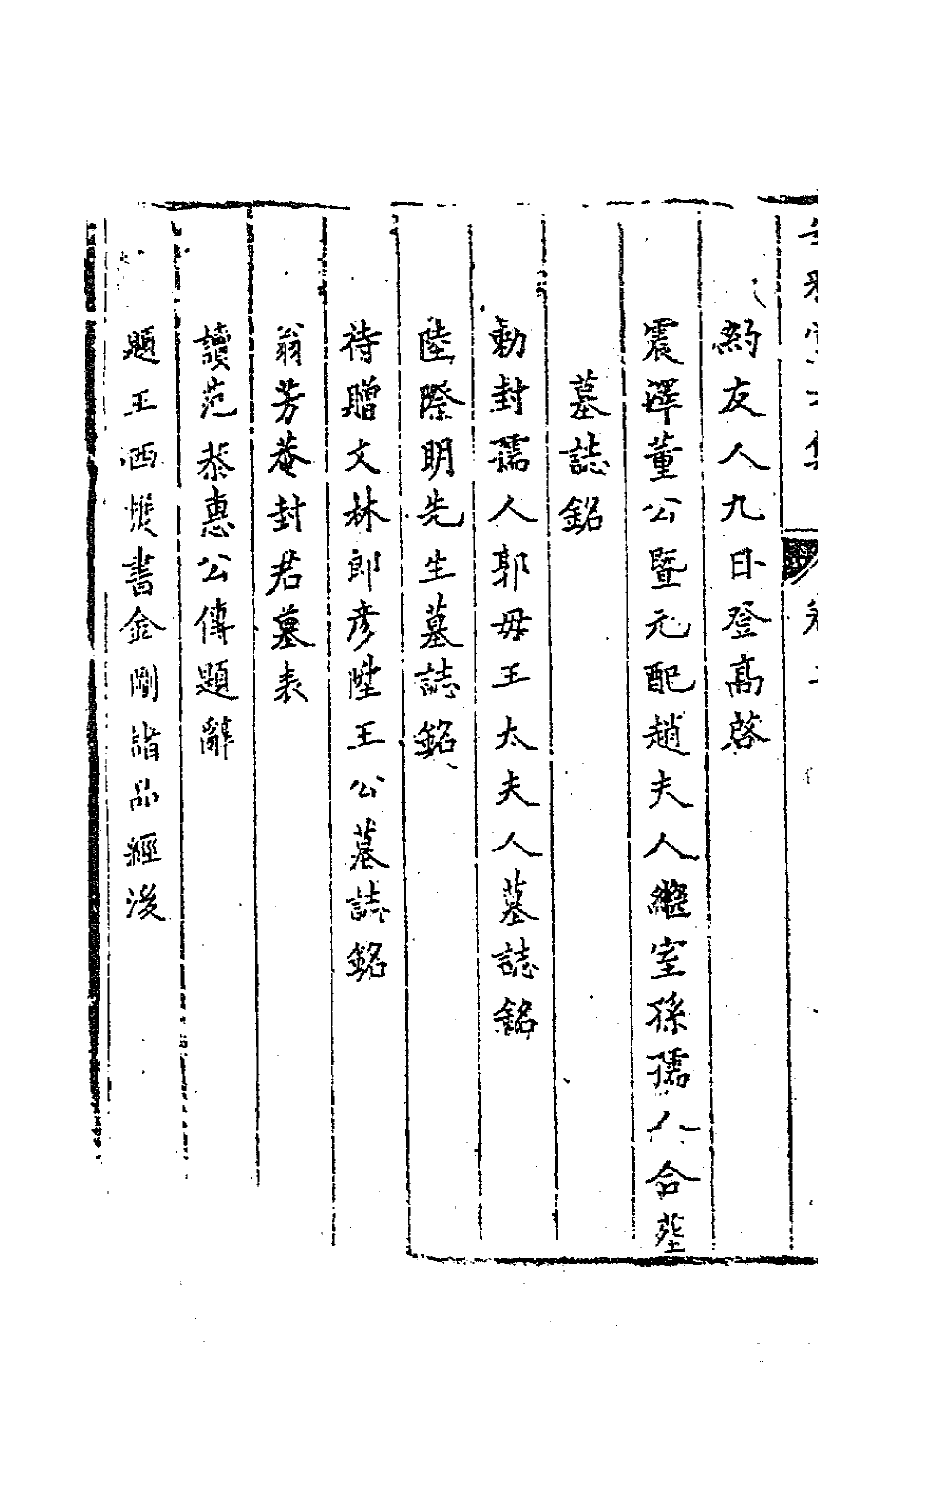 約友人九日登高啓
震澤董公暨元配趙夫人繼室孫孺人合塟
墓誌銘
勅封孺人郭母王太夫人墓誌銘
陸際明先生墓誌銘
待贈文林郎彦陞王公墓誌銘
翁芳菴封君墓表
讀范恭惠公傳題辭
題王西書金剛諸品經後